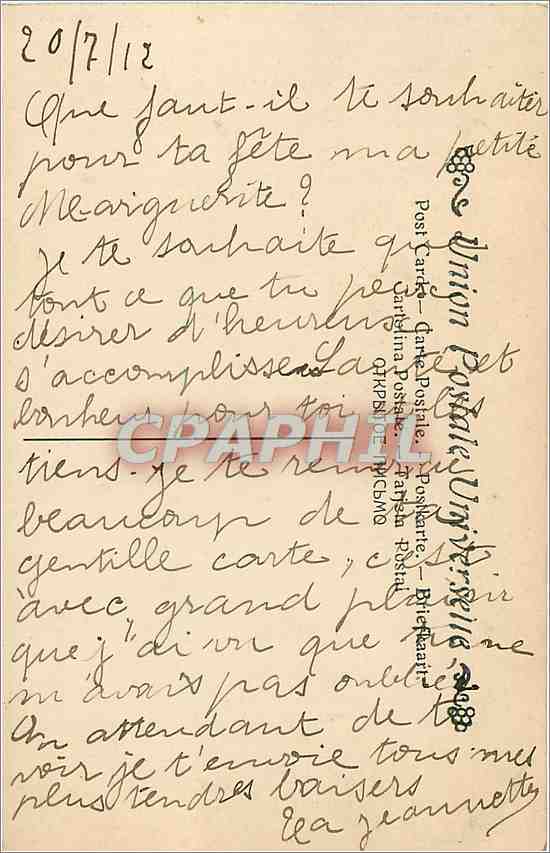 20/7/12
Que faut-il te souhaiter
pour ta fête ma petite
Marguerite?
je te souhaite que
tout ce que tu peux
désirer d'heureux
s'accomplisse Santé et
bonheur pour toi les
tiens. je te remercie
beaucoup de ta
gentille carte, c'est
avec grand plaisir
que j'ai vu que tu ne
m'avais pas oubliée
En attendant de te
voir je t'envoie tous mes
plus tendres baisers
Ta jeannette
Union Postale Universelle
Post Card. — Carte Postale. — Postkarte. — Briefkaart.
Cartolina Postale. — Tarjeta Postal
ОТКРЫТОЕ ПИСЬМО
CPAPHIL